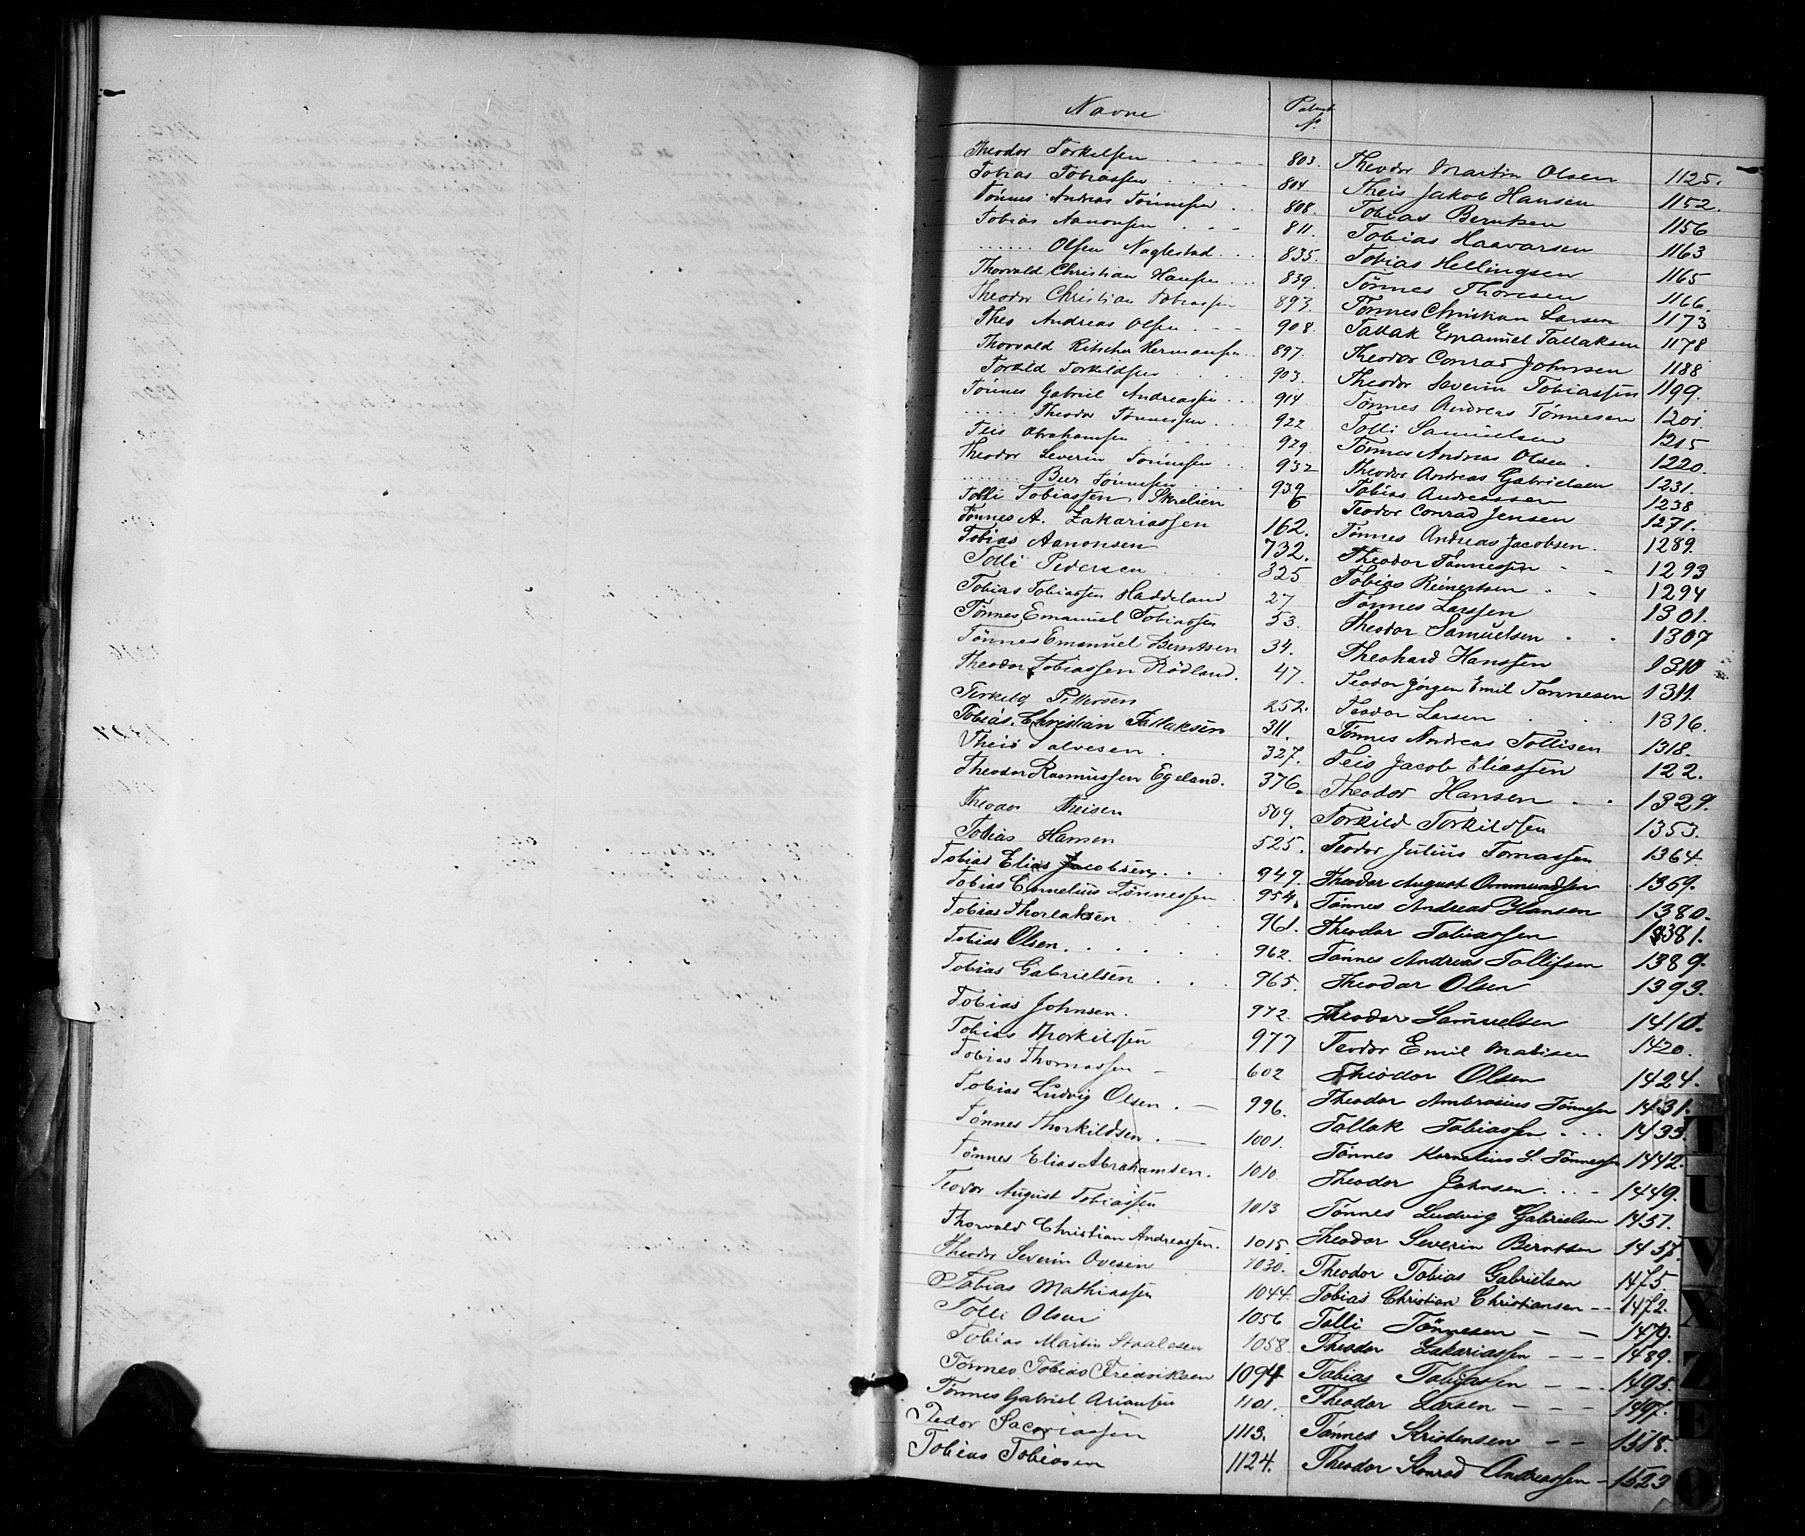 Navne Patent No.
Theodor Torkilsen 803.
Tobias Tobiassen 804
Tønnes Andreas Tønnesen 808.
Tobias Aanonsen 811.
" Olsen Naglestad 835.
Thorvald Christian Hansen 839.
Theodor Christian Tobiassen 893.
Theo Andreas Olsen 908.
Thorvald Ritscher Hermansen 897.
Torkild Torkildsen 903.
Tønnes Gabriel Andreassen 914
" Theodor Tønnessen 922
Teis Abrahamsen 929
Theodor Severin Tønnesen 932
" Beer Tønnesen 939
Tolli Tobiassen Skrelien 6
Tønnes A. Zakariassen 162.
Tobias Aanonsen 732.
Tolli Pedersen 325
Tobias Tobiassen Haddeland 27
Tønnes Emanuel Tobiassen 53.
Tønnes Emanuel Berntsen 34.
Theodor Tobiassen Rödland. 47.
Terkild Pettersen 252.
Tobias Christian Tallaksen 311.
Theis Salvesen 327.
Theodor Rasmussen Egeland. 376.
Theodor Theisen 509.
Tobias Hansen 525.
Tobias Elias Jacobsen 947.
Tobias Cornelius Tønnessen 954.
Tobias Thorlaksen 961.
Tobias Olsen 962.
Tobias Gabrielsen 965.
Tobias Johnsen. 972.
Tobias Thorkildsen 977
Tobias Thomassen 602
Tobias Ludvig Olsen 996.
Tønnes Thorkildsen 1001.
Tønnes Elias Abrahamsen. 1010.
Teodor August Tobiassen 1013
Thorvald Christian Andreassen. 1015.
Theodor Severin Ovesen 1030.
Tobias Mathiassen 1044.
Tolli Olsen 1056
Tobias Martin Staalesen 1058.
Tønnes Tobias Fredriksen 1094
Tønnes Gabriel Ariansen 1101.
Tedor Sacariassen 1113.
Tobias Tobiasen 1124.
Theodor Martin Olsen 1125.
Theis Jakob Hansen 1152.
Tobias Berntsen 1156
Tobias Haavarsen 1163
Tobias Hellingsen 1165
Tönnes Thoresen 1166.
Tønnes Christian Larsen 1173
Tallak Emanuel Tallaksen 1178
Theodor Conrad Johnsen 1188
Theodor Severin Tobiassen 1199.
Tönnes Andreas Tönnesen 1201.
Tolli Samuelsen 1215
Tønnes Andreas Olsen 1220.
Theodor Andreas Gabrielsen 1231.
Tobias Andreassen 1238
Teodor Conrad Jensen 1271.
Tønnes Andreas Jacobsen. 1289.
Theodor Tønnessen 1293
Tobias Reinertsen 1294
Tønnes Larssen 1301.
Theodor Samuelsen 1307
Theohard Hanssen 1310
Teodor Jörgen Emil Tønnesen 1311
Teodor Larsen 1316.
Tønnes Andreas Tollisen 1318.
Teis Jacob Eliassen 122.
Theodor Hansen 1329.
Torkild Torkildsen 1353.
Teodor Julius Tomassen 1364.
Theodor August Ommundsen 1369.
Tønnes Andreas Hansen 1380.
Theodor Tobiassen 1381.
Tønnes Andreas Tollefsen 1389.
Theodor Olsen 1393.
Theodor Samuelsen 1410.
Teodor Emil Matisen 1420.
Theodor Olsen 1424.
Theodor Ambrosius Tønnesen 1431.
Tallak Tobiassen 1433.
Tönnes Kornelius S. Tønnessen 1442.
Theodor Johnsen 1449.
Tønnes Ludvig Gabrielsen 1457.
Theodor Severin Berntsen 1457.
Theodor Tobias Gabrielsen 1475
Tobias Christian Christiansen 1472.
Tolli Tønnesen 1479.
Theodor Zakariassen 1489.
Tobias Tobiassen 1495.
Theodor Larsen 1497.
Tønnes Kristensen 1518.
Theodor Konrad Andreassen 1523
T
U
V
X
Z
E
Ø